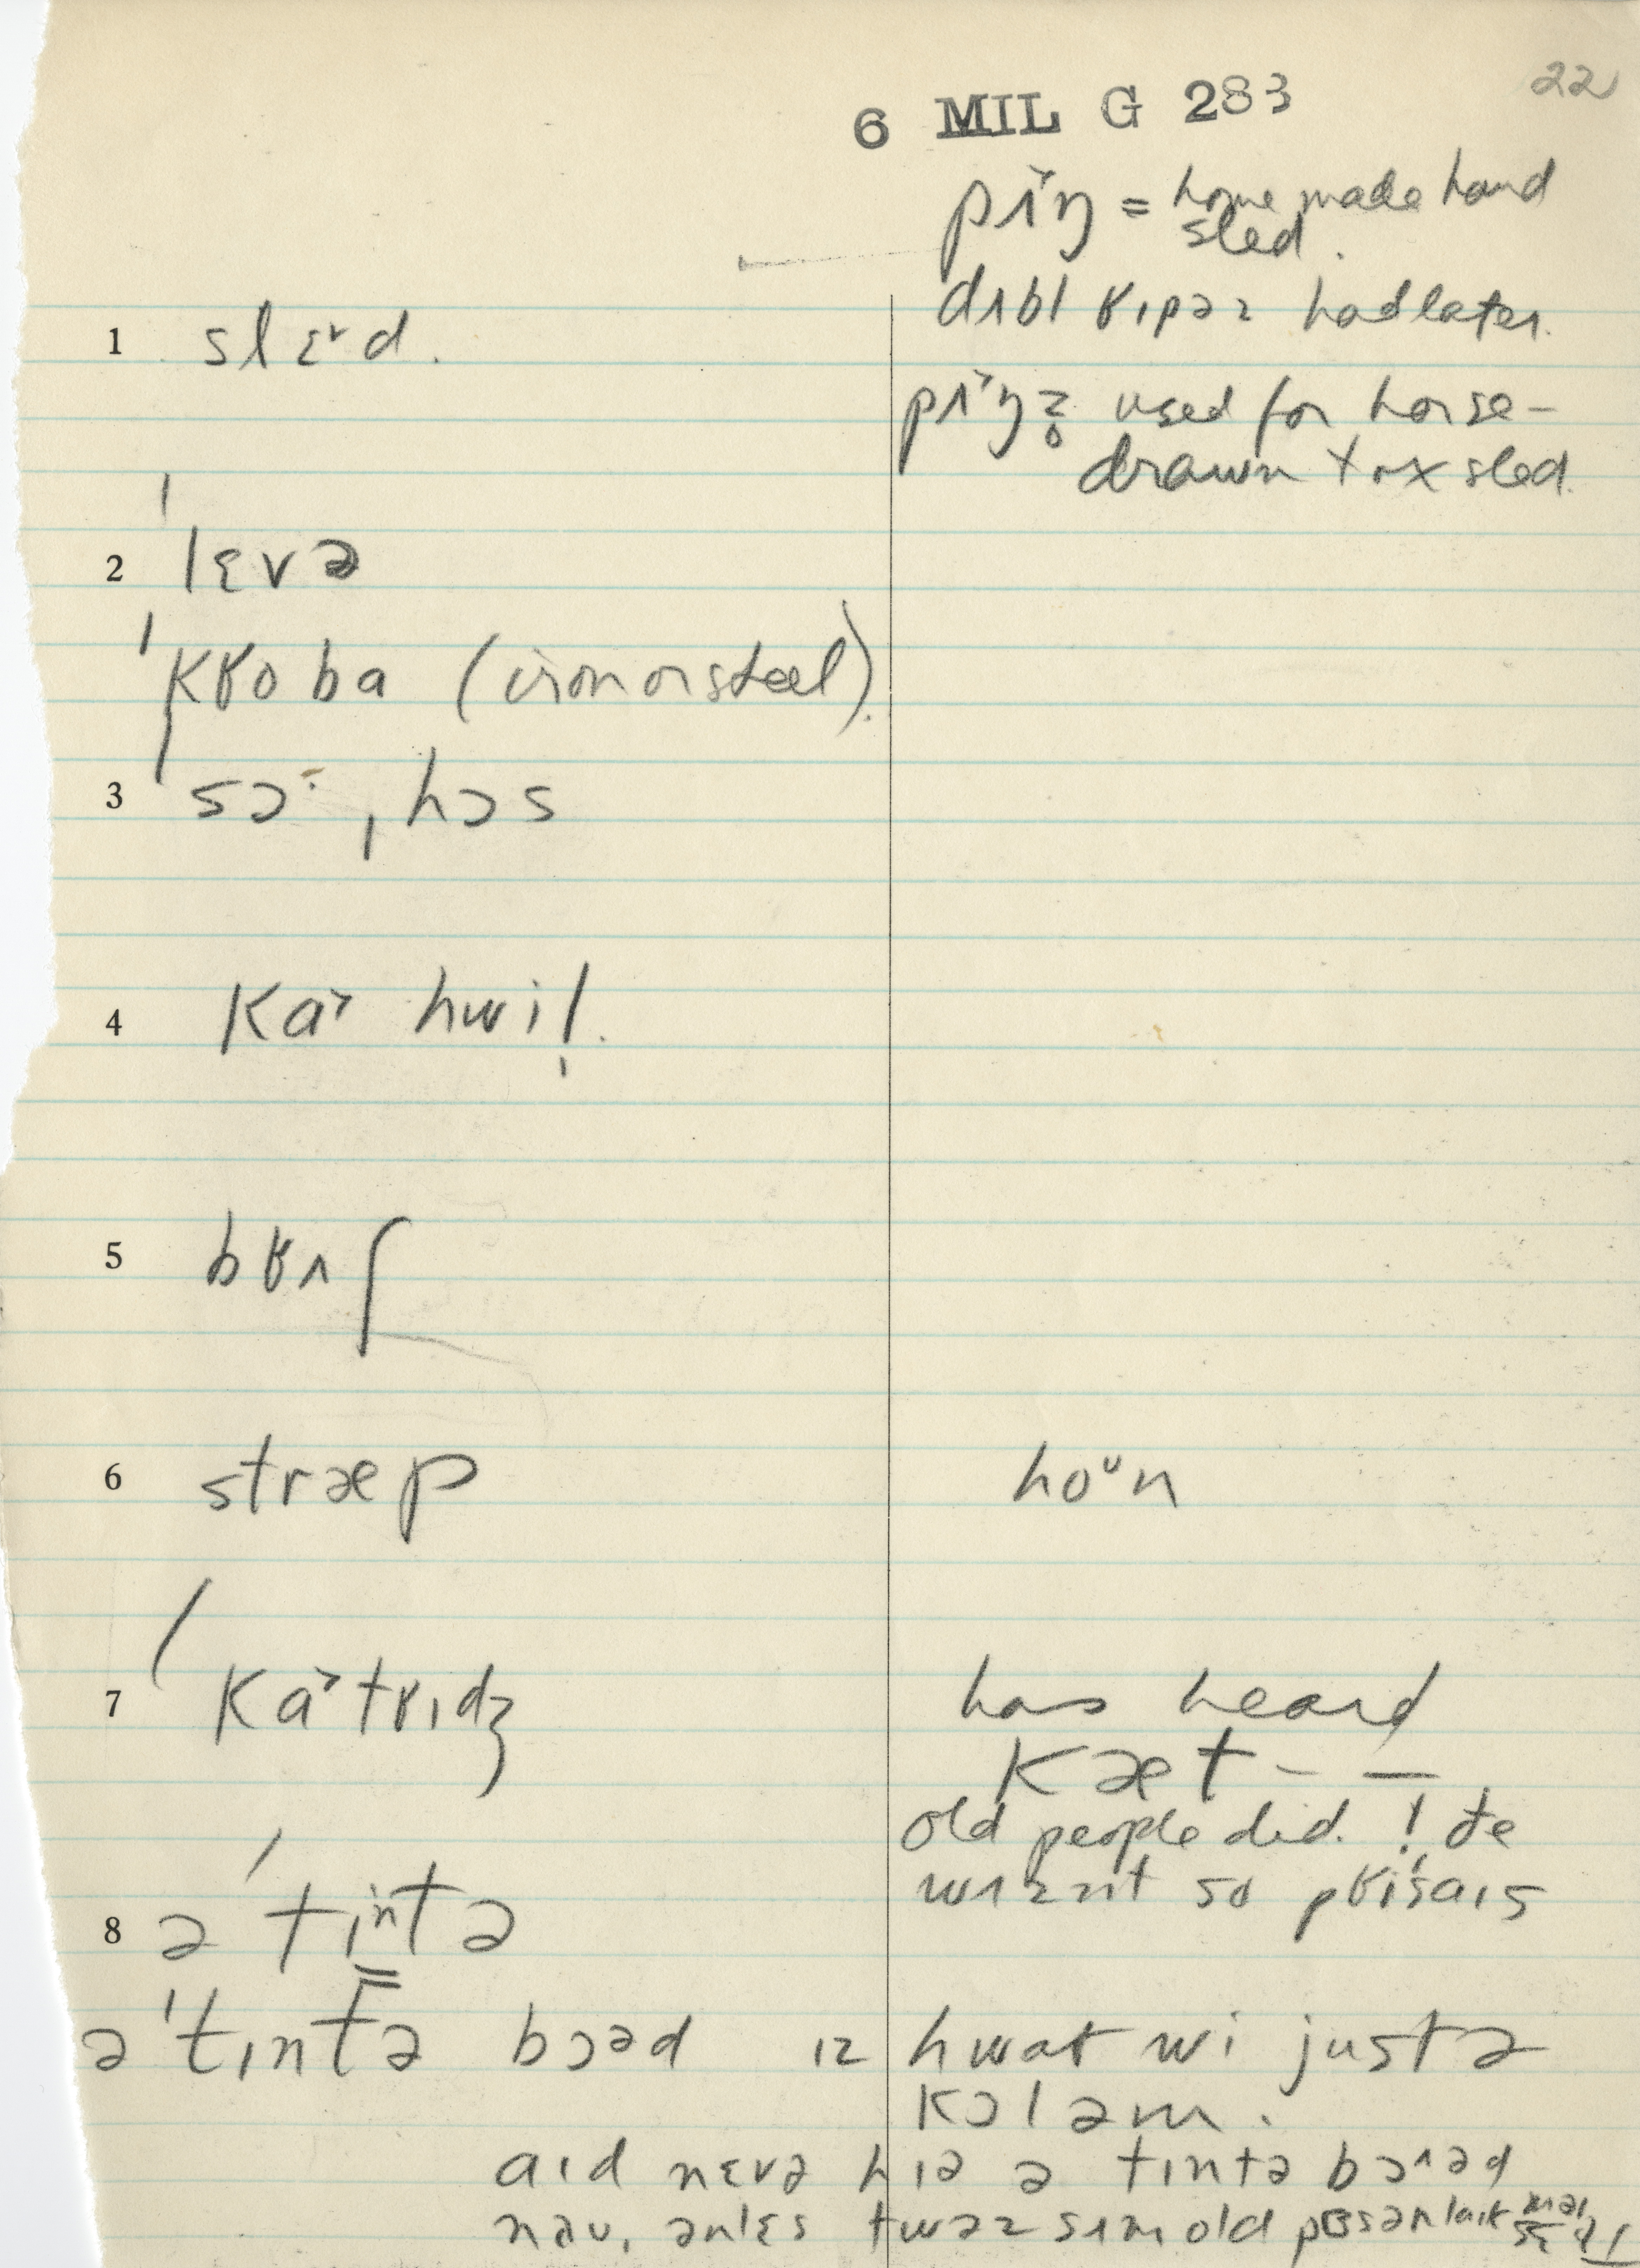 22
6 MIL G 283
pʌ˅ŋ = home made hand
sled.
dʌbl ʁɪpəz had later.
1 slɛ˅d.
pʌ˅ŋz̥ used for horse-
drawn + ox sled.
2 'lɛvə
'kʁoba (iron or steel).
3 'sɔ·, hɔs
4 ka˃ hwil̩.
5 bʁʌʃ
6 stræp ho^ʊn
7 ka˃tʁɪdʒ has heard
kæt – –
old people did. ! ðe
wʌzn̩t so
8 ə tɪntə
ə 'tɪntə bɔəd ɪz hwat wi justə
kɔl əm.
aɪd nɛvə hɪə ə tɪntə bɔəd
naʊ, ənlɛs twəz sʌm old pɜsən laɪk